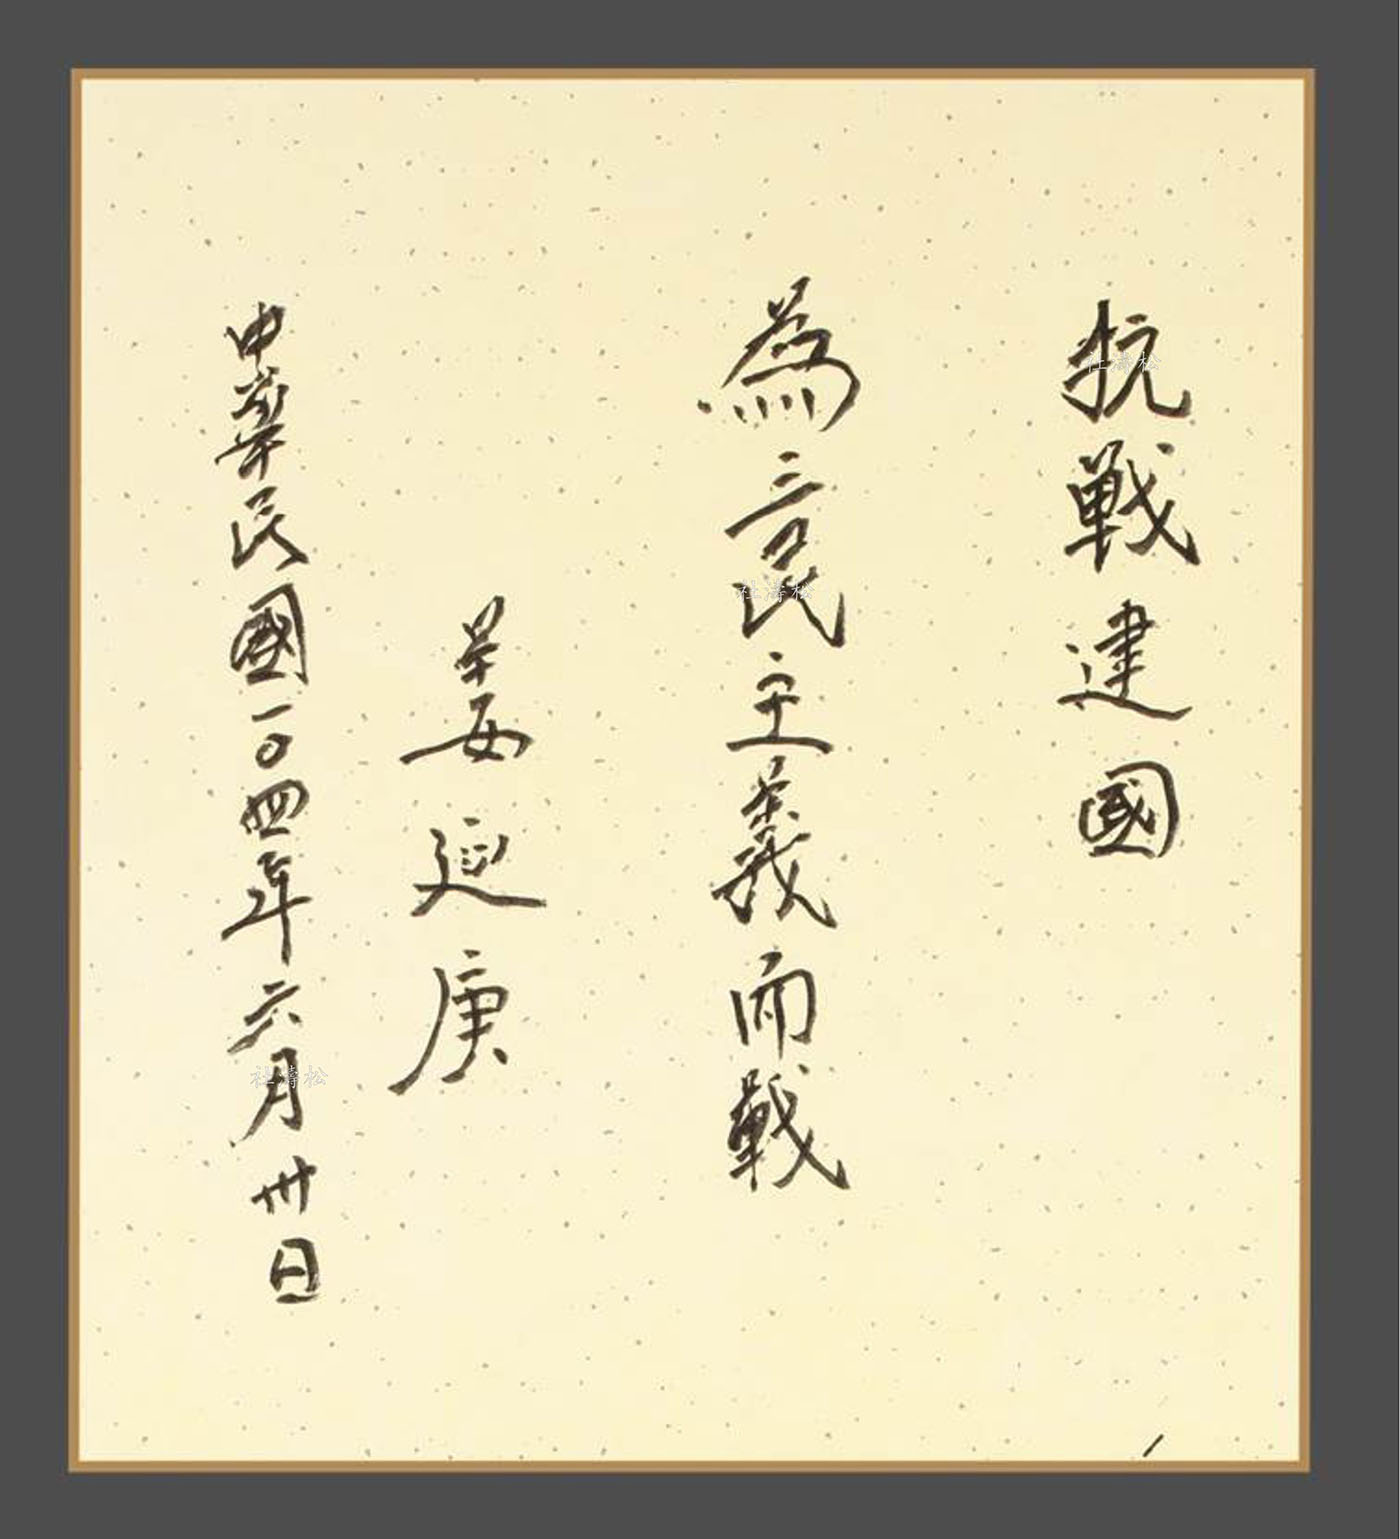 抗戰建國
為三民主義而戰
姜延庚
中華民國一〇四年六月卅日